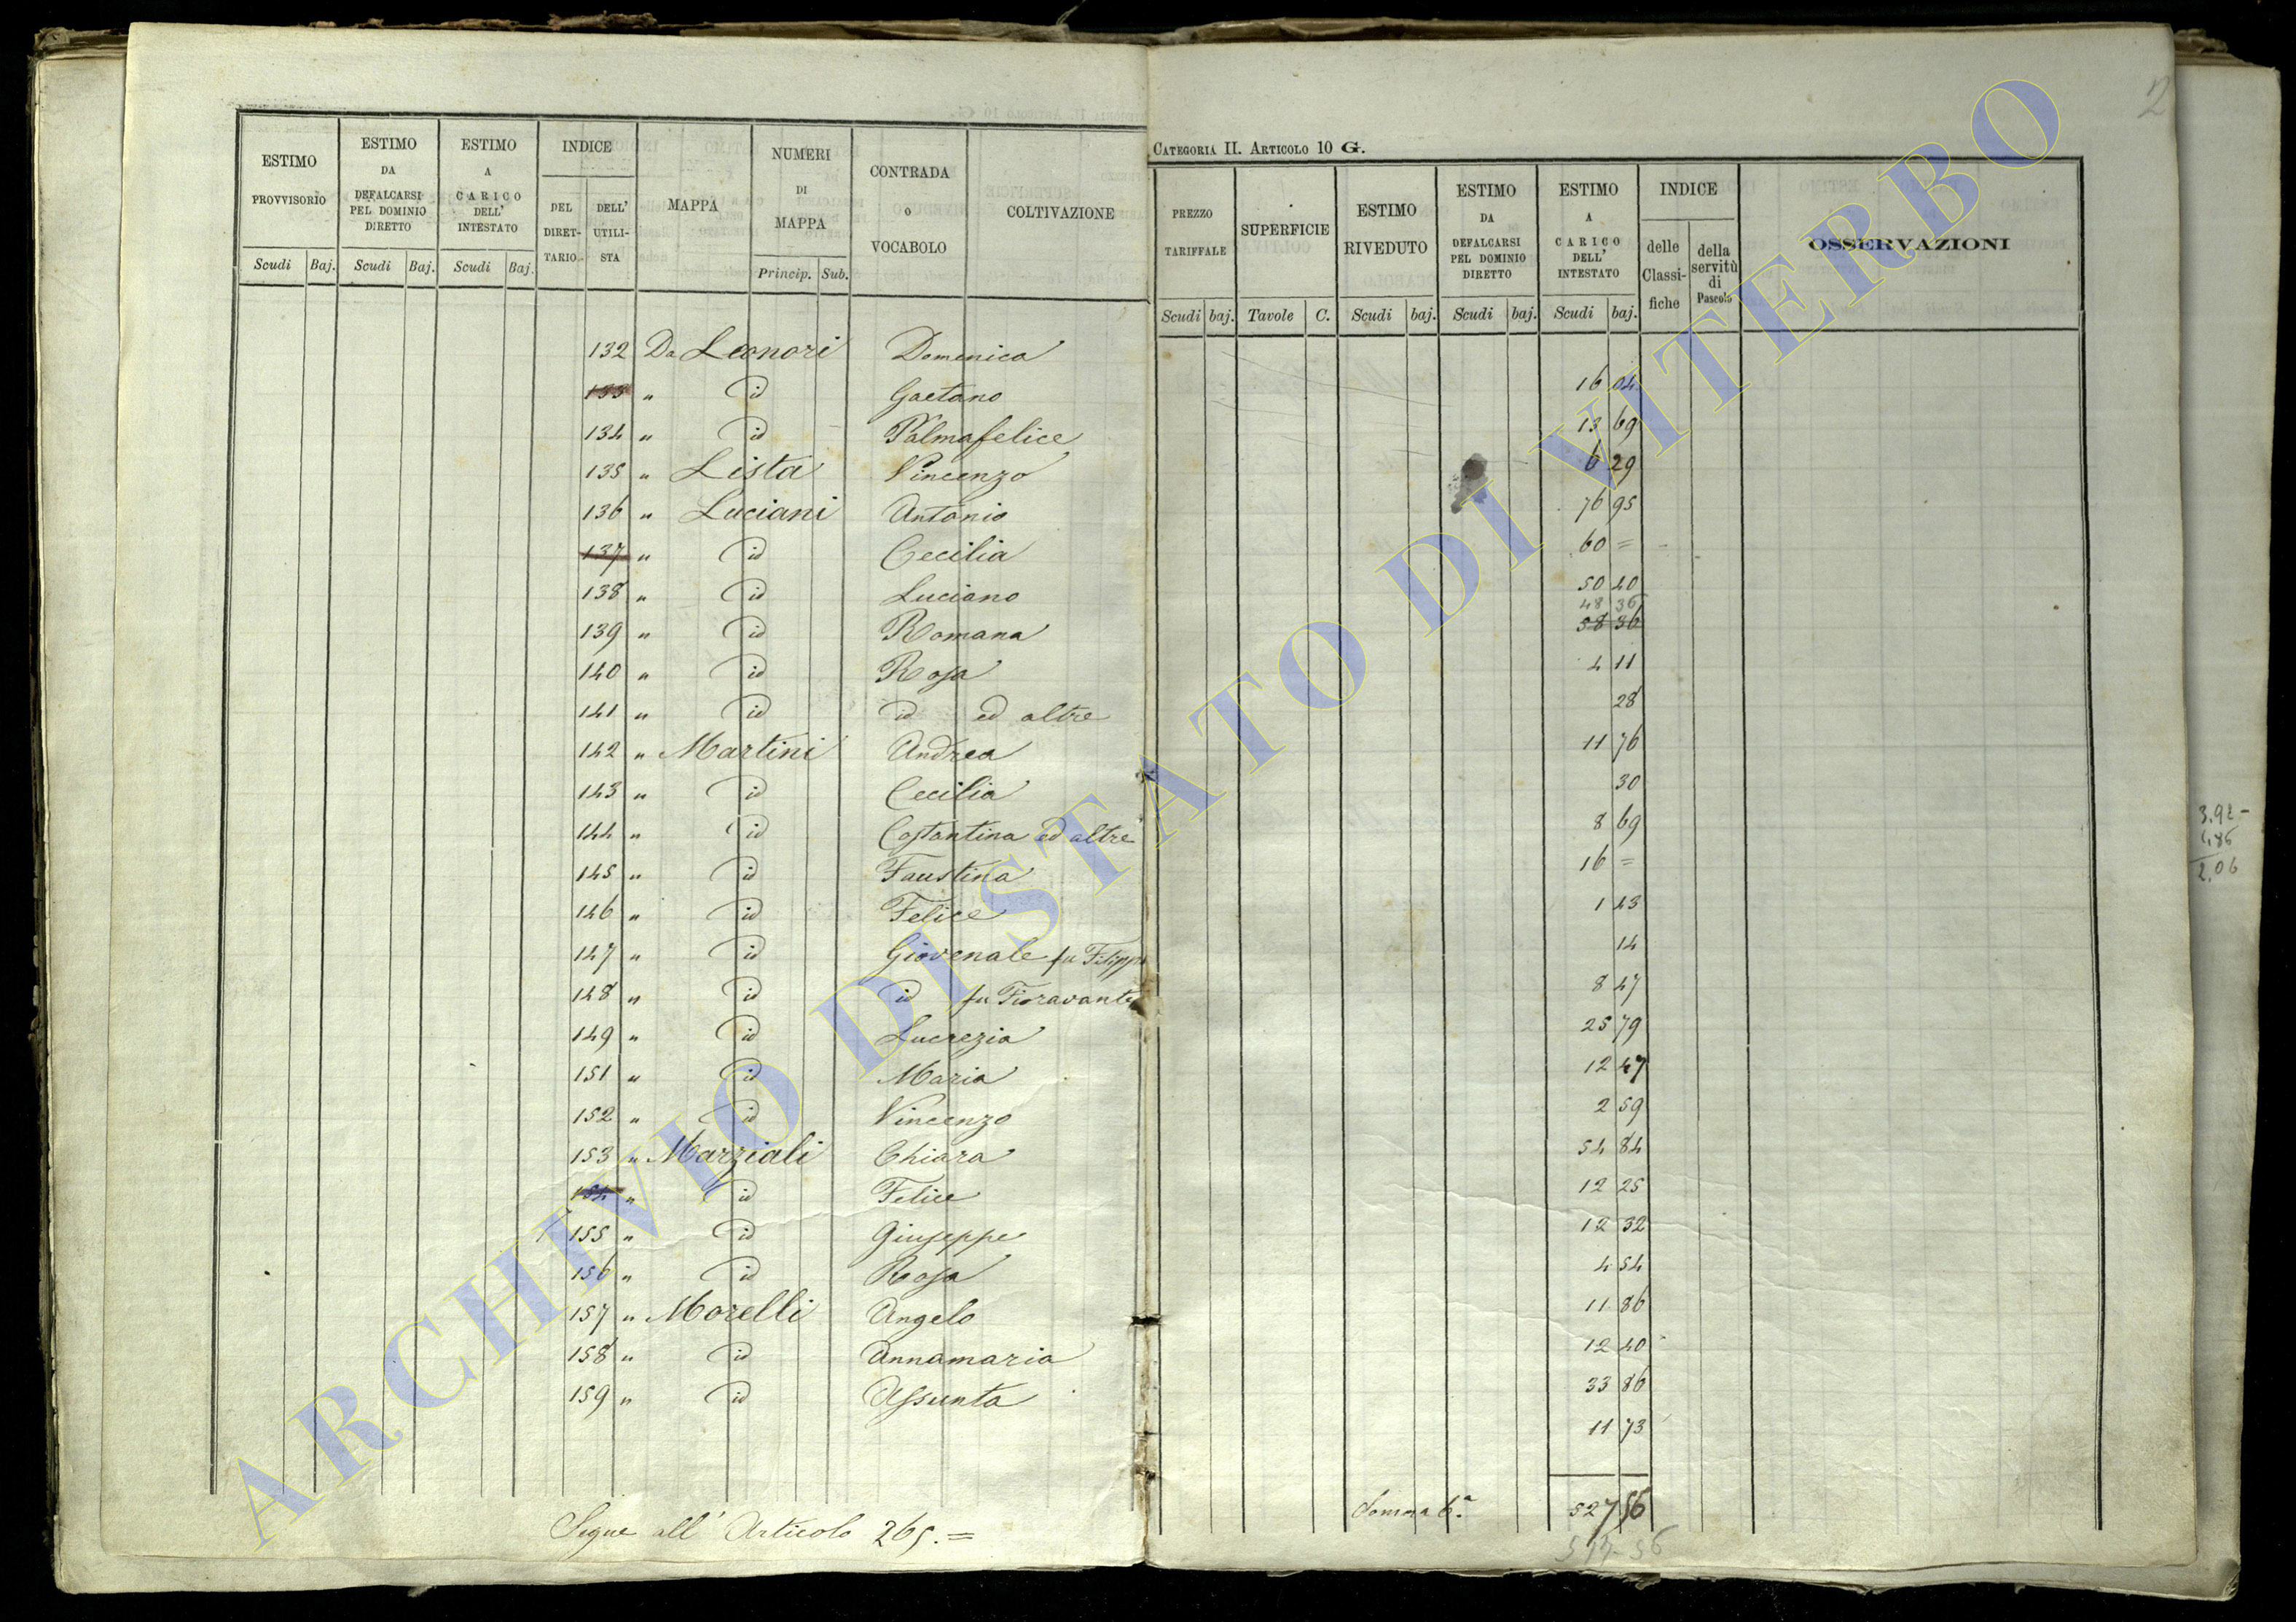 ESTIMO PROVVISORIO Scudi Baj.
ESTIMO DA DEFALCARSI PEL DOMINIO DIRETTO Scudi Baj.
ESTIMO A CARICO DELL' INTESTATO Scudi Baj.
INDICE DEL DIRETTARIO DELL' UTILISTA
MAPPA
NUMERI DI MAPPA Princip. Sub.
CONTRADA O VOCABOLO
COLTIVAZIONE
132 Da Leonori Domenica
133 " id Gaetano
134 " id Palmafelice
135 " Lista Vincenzo
136 " Luciani Antonio
137 " id Cecilia
138 " id Luciano
139 " id Romana
140 " id Rosa
141 " id id ed altre
142 " Martini Andrea
143 " id Cecilia
144 " id Costantina ed altre
145 " id Faustina
146 " id Felice
147 " id Giovenale fu Filippo
148 " id id fu Fioravante
149 " id Lucrezia
151 " id Maria
152 " id Vincenzo
153 " Marziali Chiara
154 " id Felice
155 " id Giuseppe
156 " id Rosa
157 " Morelli Angelo
158 " id Annamaria
159 " id Assunta
Segue all' Articolo 265. =
2
CATEGORIA II. ARTICOLO 10 G.
PREZZO TARIFFALE Scudi baj.
SUPERFICIE Tavole C.
ESTIMO RIVEDUTO Scudi baj.
ESTIMO DA DEFALCARSI PEL DOMINIO DIRETTO Scudi baj.
ESTIMO A CARICO DELL' INTESTATO Scudi baj.
INDICE delle Classifiche della servitù di Pascolo
OSSERVAZIONI
16 04
13 69
6 29
76 95
60 =
50 40
48 36
58 36
4 11
28
11 76
30
8 69
16 =
1 43
14
8 47
25 79
12 47
2 59
54 84
12 25
12 32
4 54
11 86
12 40
33 86
11 73
Somma 6.a 527 56
517 56
3.92
1.86
2.06
ARCHIVIO DI STATO DI VITERBO